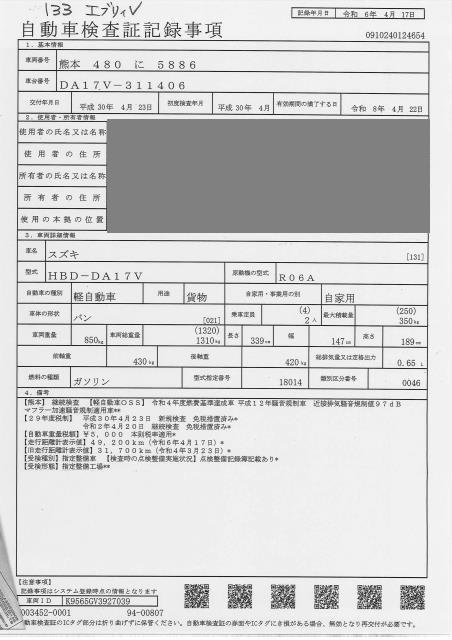 133 エブリィV
記録年月日 令和 6年 4月 17日
自動車検査証記録事項
0910240124654
1. 基本情報
車両番号 熊本 480 に 5886
車台番号 DA17V-311406
交付年月日 平成 30年 4月 23日 初度検査年月 平成 30年 4月 有効期間の満了する日 令和 8年 4月 22日
2. 使用者・所有者情報
使用者の氏名又は名称
使用者の住所
所有者の氏名又は名称
所有者の住所
使用の本拠の位置
3. 車両詳細情報
車名 スズキ [131]
型式 HBD-DA17V 原動機の型式 R06A
自動車の種別 軽自動車 用途 貨物 自家用・事業用の別 自家用
車体の形状 バン [021] 乗車定員 (4) 2人 最大積載量 (250) 350kg
車両重量 850kg 車両総重量 (1320) 1310kg 長さ 339cm 幅 147cm 高さ 189cm
前軸重 430kg 後軸重 420kg 総排気量又は定格出力 0.65 L
燃料の種類 ガソリン 型式指定番号 18014 類別区分番号 0046
4. 備考
【熊本】 継続検査 【軽自動車OSS】 令和4年度燃費基準達成車 平成12年騒音規制車 近接排気騒音規制値97dB
マフラー加速騒音規制適用車**
【29年度税制】 平成30年4月23日 新規検査 免税措置済み*
令和2年4月20日 継続検査 免税措置済み*
【自動車重量税額】 ¥5,000 本則税率適用*
【走行距離計表示値】 49,200km (令和6年4月17日)*
【旧走行距離計表示値】 31,700km (令和4年3月23日)*
【受検種別】 指定整備車 【検査時の点検整備実施状況】 点検整備記録簿記載あり*
【受検形態】 指定整備工場**
【注意事項】
記録事項はシステム登録時点の情報となります
車両ID K9565GV3927039
003452-0001 94-00807
自動車検査証のICタグ部分は折り曲げずに保管ください。自動車検査証の券面やICタグに き損がある場合、無効となり再交付が必要です。